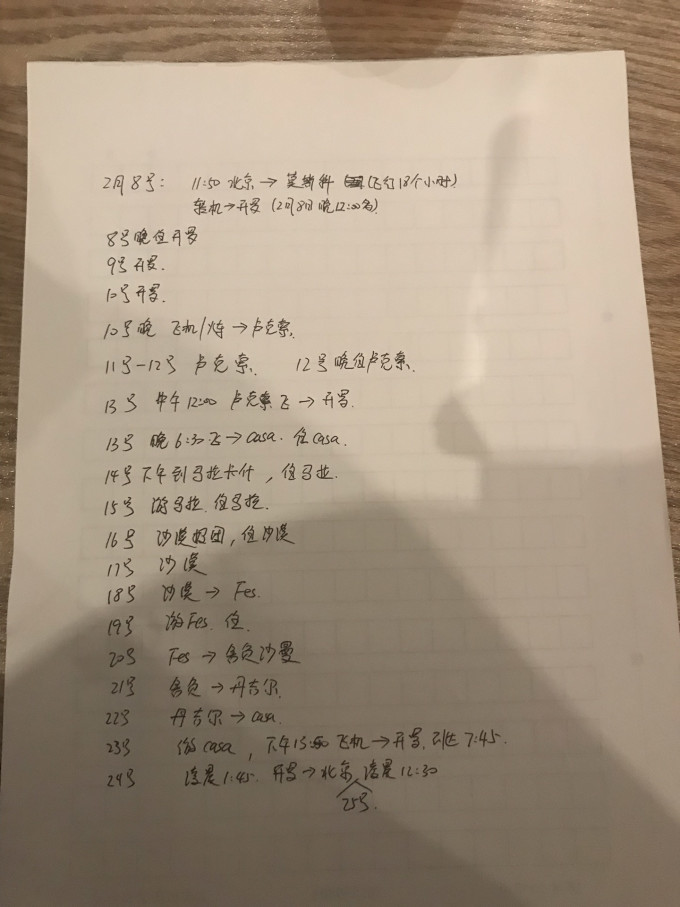 2月8号： 11:50 北京→莫斯科 (飞行18个小时)
转机→开罗 (2月8日晚12:00多)
8号晚住开罗
9号开罗.
10号开罗.
10号晚 飞机/火车→卢克索.
11号-12号 卢克索. 12号晚住卢克索.
13号 中午12:00 卢克索飞→开罗.
13号 晚6:30飞→casa. 住casa.
14号下午到马拉卡什，住马拉.
15号 游马拉. 住马拉.
16号 沙漠报团，住沙漠
17号 沙漠
18号 沙漠→Fes.
19号 游Fes. 住.
20号 Fes→舍负沙曼
21号 舍负→丹吉尔.
22号 丹吉尔→casa.
23号 游casa，下午13:50飞机→开罗. 到达7:45.
24号 凌晨1:45. 开罗→北京 凌晨12:30
25号.